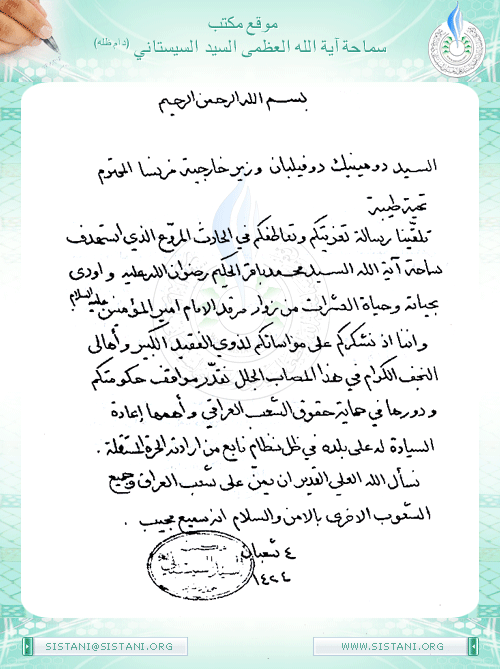 موقع مكتب
سماحة آية الله العظمى السيد السيستاني (دام ظله)
بسم الله الرحمن الرحيم
السيد دومينيك دوفيلبان وزير خارجية فرنسا المحترم
تحية طيبة
تلقّينا رسالة تعزيتكم وتعاطفكم في الحادث المروّع الذي استهدف
سماحة آية الله السيد محمد باقر الحكيم رضوان الله عليه و اودى
بحياته وحياة العشرات من زوار مرقد الامام امير المؤمنين عليه السلام
واننا اذ نشكركم على مواساتكم لذوي الفقيد الكبير و أهالي
النجف الكرام في هذا المصاب الجلل نقدّر مواقف حكومتكم
و دورها في حماية حقوق الشعب العراقي و أهمها إعادة
السيادة له على بلده في ظل نظام نابع من ارادته الحرة المستقلة .
نسأل الله العلي القدير ان يمنّ على شعب العراق وجميع
الشعوب الاخرى بالامن والسلام انه سميع مجيب .
٤ شعبان
١٤٢٤
SISTANI@SISTANI.ORG
WWW.SISTANI.ORG